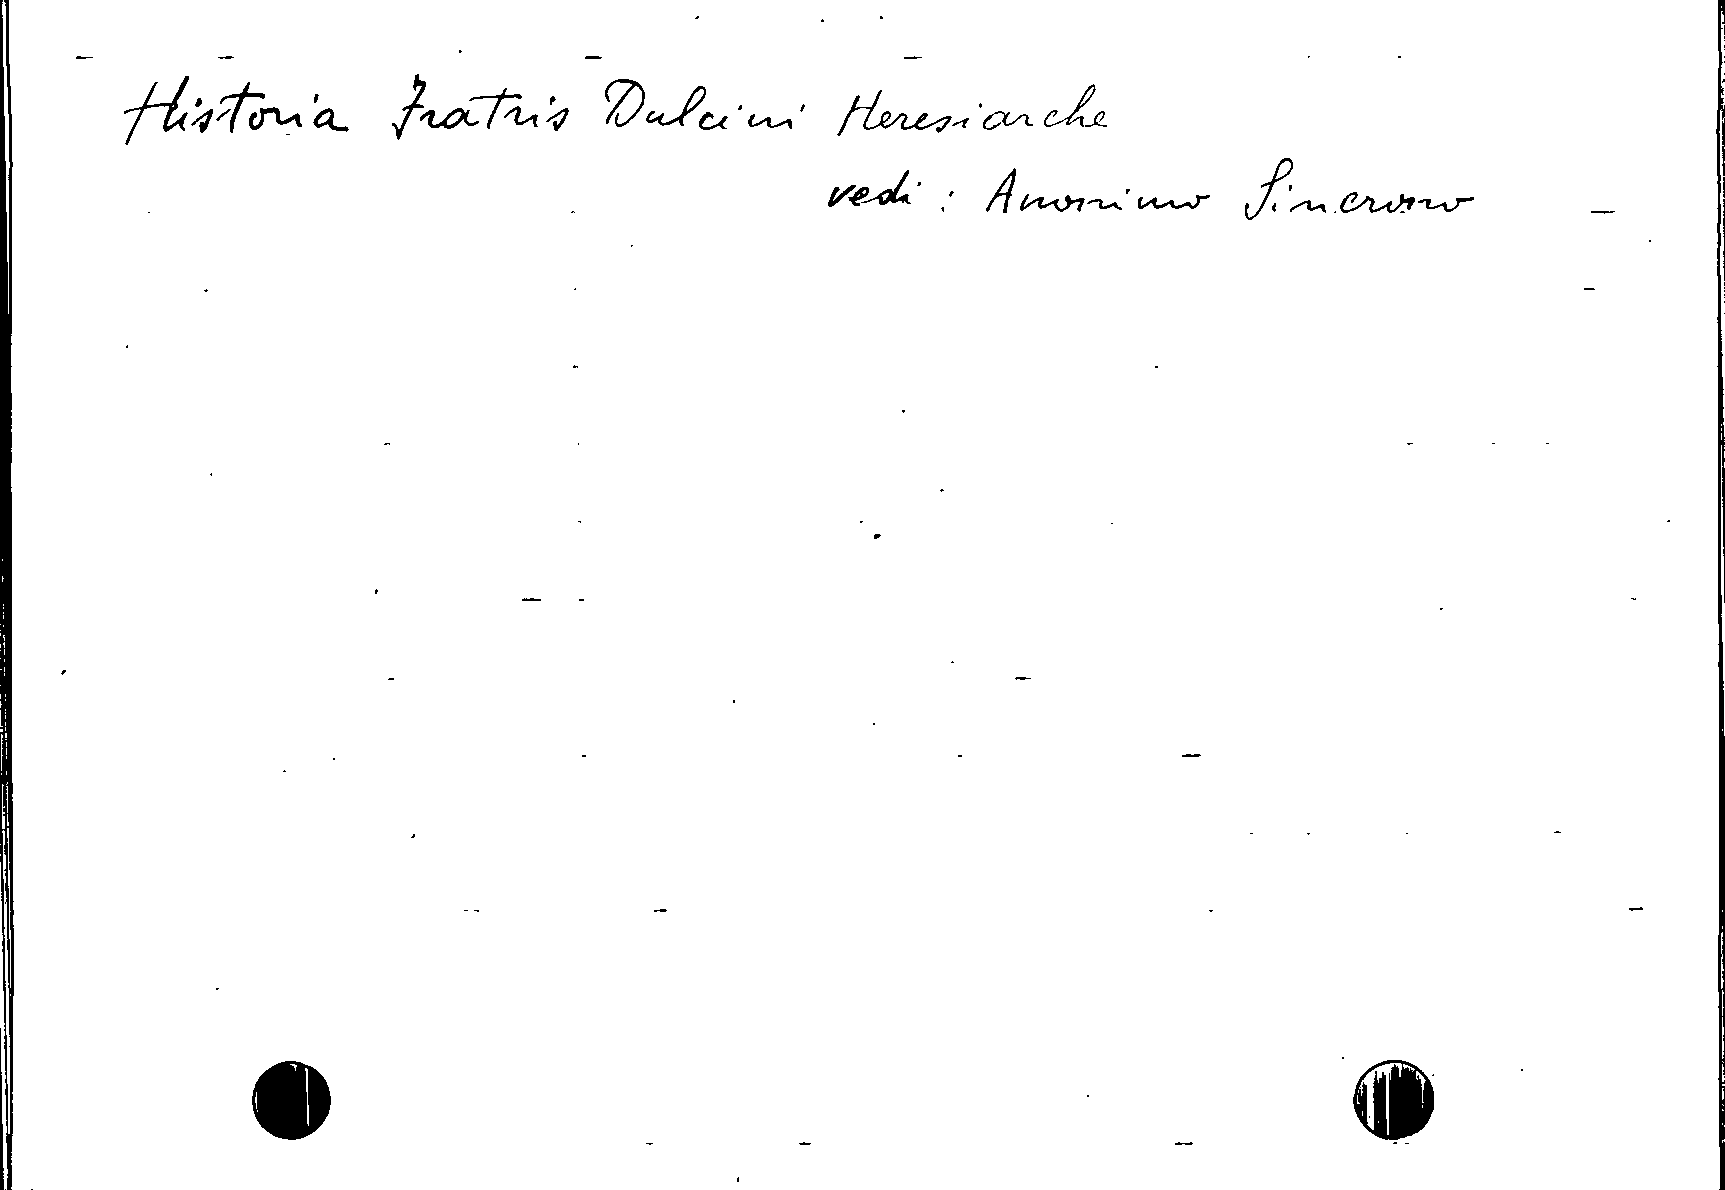 Historia Fratris Dulcini Heresiarche
vedi : Anonimo Sincrono